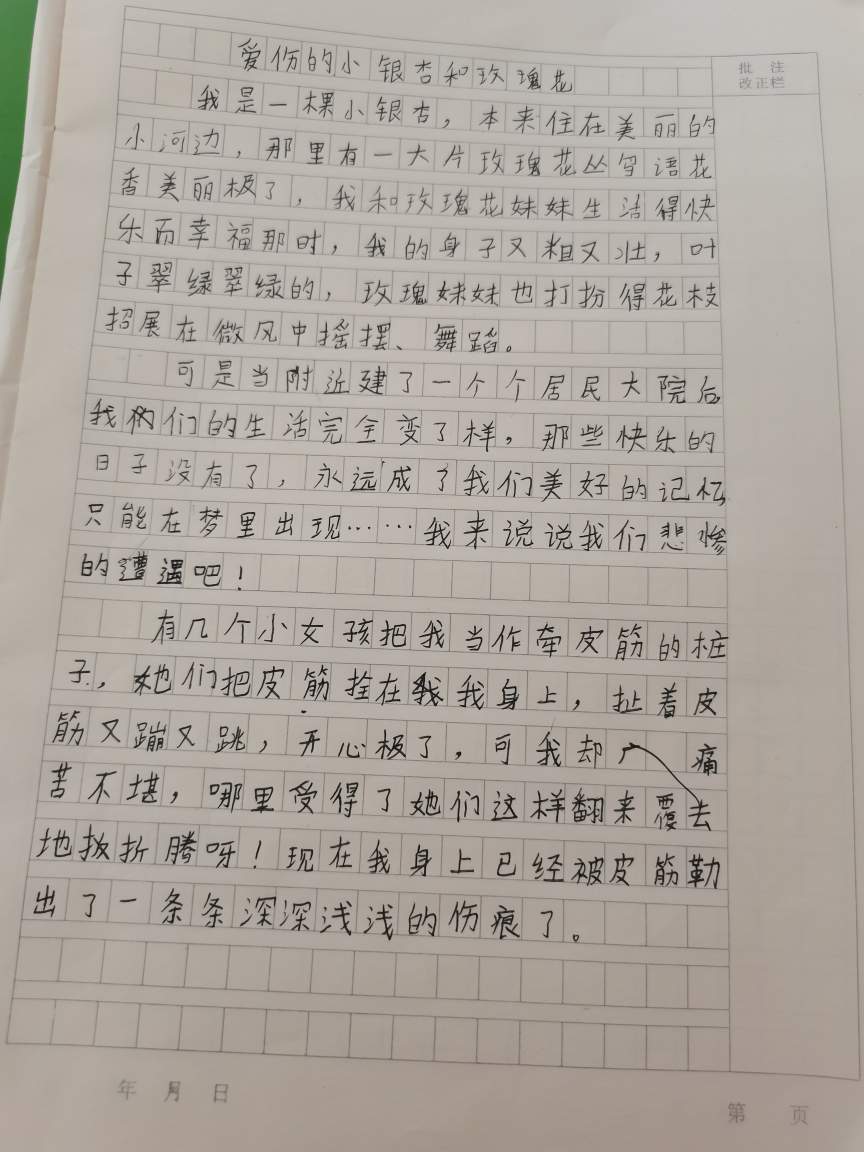 爱伤的小银杏和玫瑰花
批 注
改正栏
我是一棵小银杏，本来住在美丽的
小河边，那里有一大片玫瑰花丛鸟语花
香美丽极了，我和玫瑰花妹妹生活得快
乐而幸福那时，我的身子又粗又壮，叶
子翠绿翠绿的，玫瑰妹妹也打扮得花枝
招展在微风中摇摆、舞蹈。
可是当附近建了一个个居民大院后
我们的生活完全变了样，那些快乐的
日子没有了，永远成了我们美好的记忆
只能在梦里出现……我来说说我们悲惨
的遭遇吧！
有几个小女孩把我当作牵皮筋的桩
子，她们把皮筋拴在我身上，扯着皮
筋又蹦又跳，开心极了，可我却痛
苦不堪，哪里受得了她们这样翻来覆去
地扳折腾呀！现在我身上已经被皮筋勒
出了一条条深深浅浅的伤痕了。
年 月 日
第 页